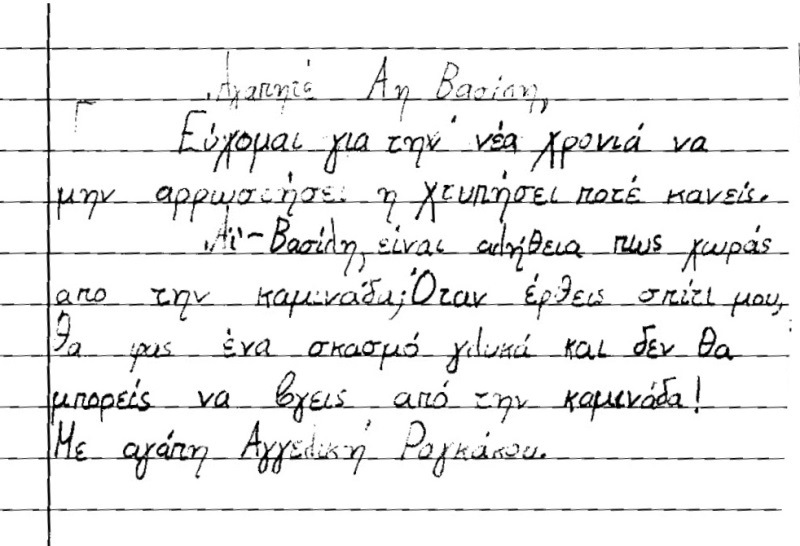 Αγαπητέ Αη Βασίλη,
Εύχομαι για την νέα χρονιά να
μην αρρωστήσει η χτυπήσει ποτέ κανείς.
Αϊ-Βασίλη, είναι αλήθεια πως χωράς
απο την καμινάδα; Όταν έρθεις σπίτι μου,
θα φας ένα σκασμό γλυκά και δεν θα
μπορείς να βγεις από την καμινάδα!
Με αγάπη Αγγελική Ρογκάκου.